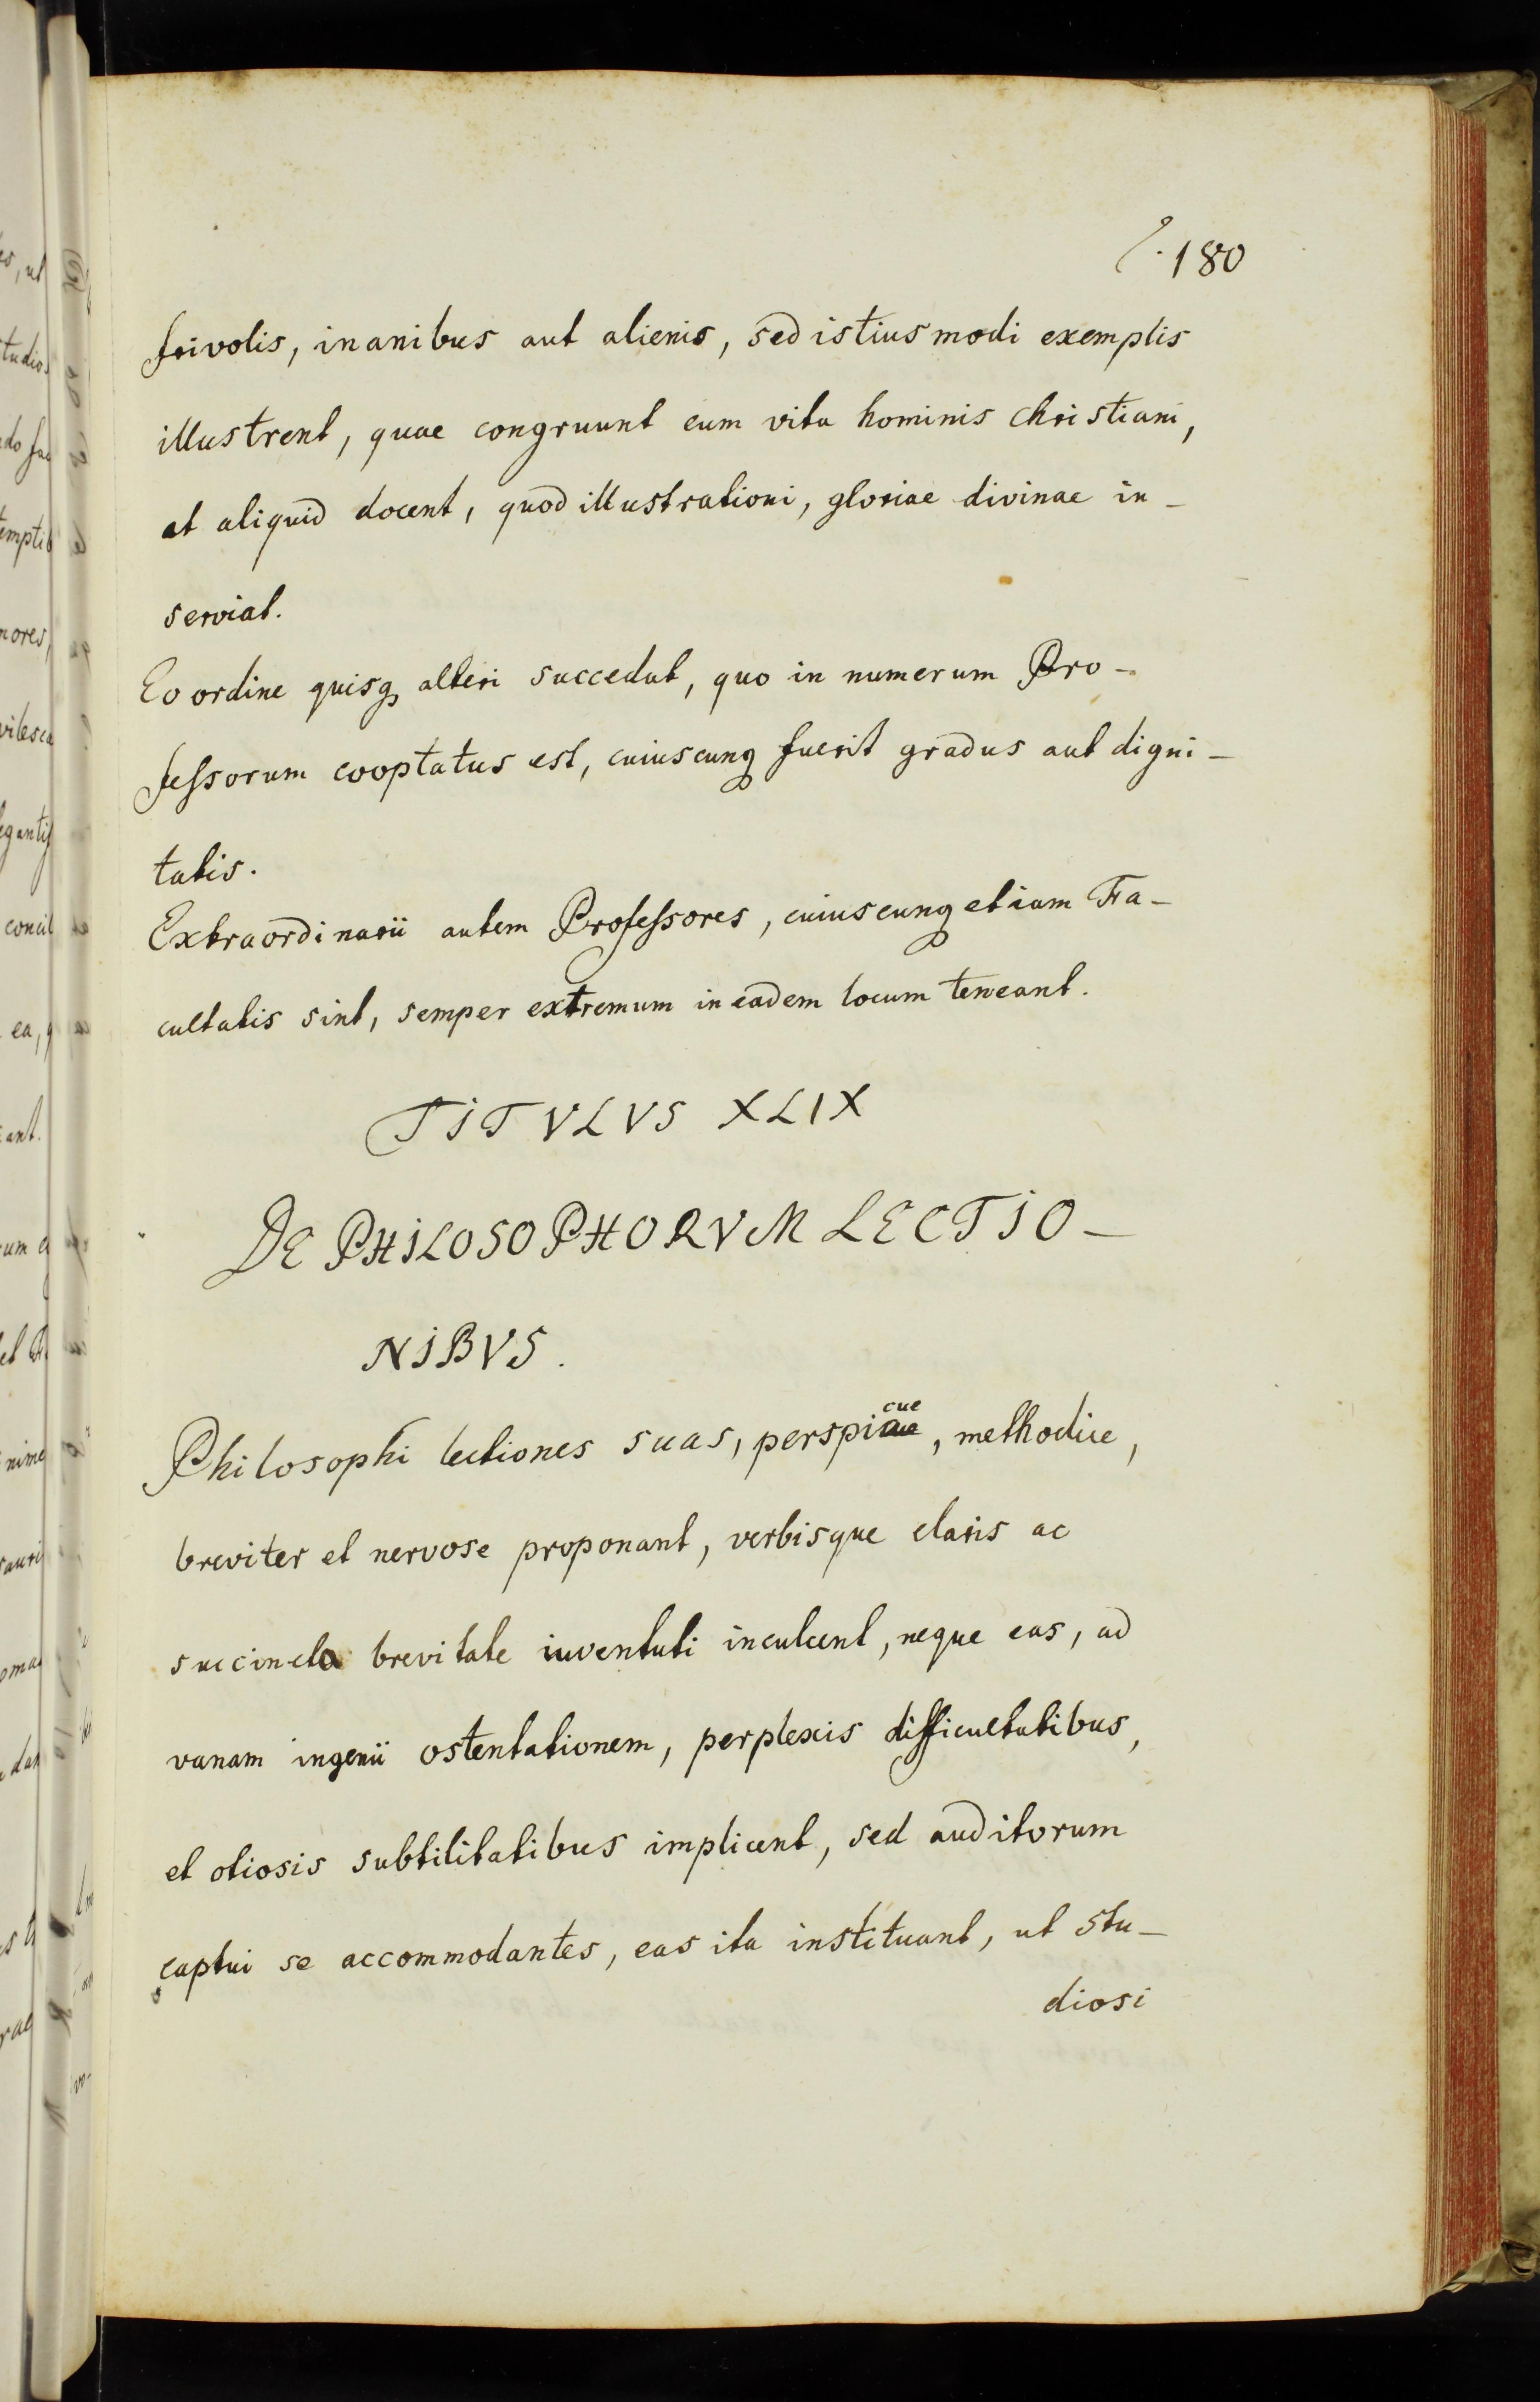 180
frivolis, inanibus aut alienis, sed istiusmodi exemplis
illustrent, quae congruunt cum vita hominis christiani,
et aliquid docent, quod illustrationi, gloriae divinae in-
serviat.
Eo ordine quisq alteri succedat, quo in numerum Pro-
feſsorum cooptatus est, cuiuscunq fuerit gradus aut digni-
tatis.
Extraordinarii autem Profeſsores, cuiuscunq etiam Fa-
cultatis sint, semper extremum in eadem locum teneant.
TITVLVS XLIX
DE PHILOSOPHORVM LECTIO-
NIBVS.
Philosophi lectiones suas, perspicue, methodice,
breviter et nervose proponant, verbisque claris ac
succincta brevitate iuventuti inculcent, neque eas, ad
vanam ingenii ostentationem, perplexis difficultatibus,
et otiosis subtilitatibus implicent, sed auditorum
captui se accommodantes, eas ita instituant, ut stu-
diosi